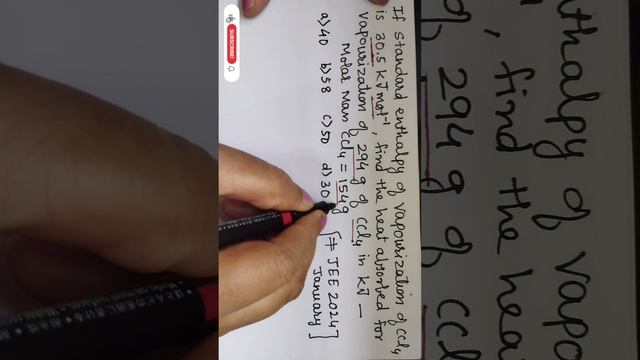 If standard enthalpy of vapourization of ccl4
is 30.5 kJ mol-1, find the heat absorbed for
vapourization of 294 g of ccl4 in kJ —
Molar Mass ccl4 = 154g
a) 40 b) 58 c) 50 d) 30
[# JEE 2024
January]
SUBSCRIBE
nthalpy of vapo
, find the hea
294 g of ccl